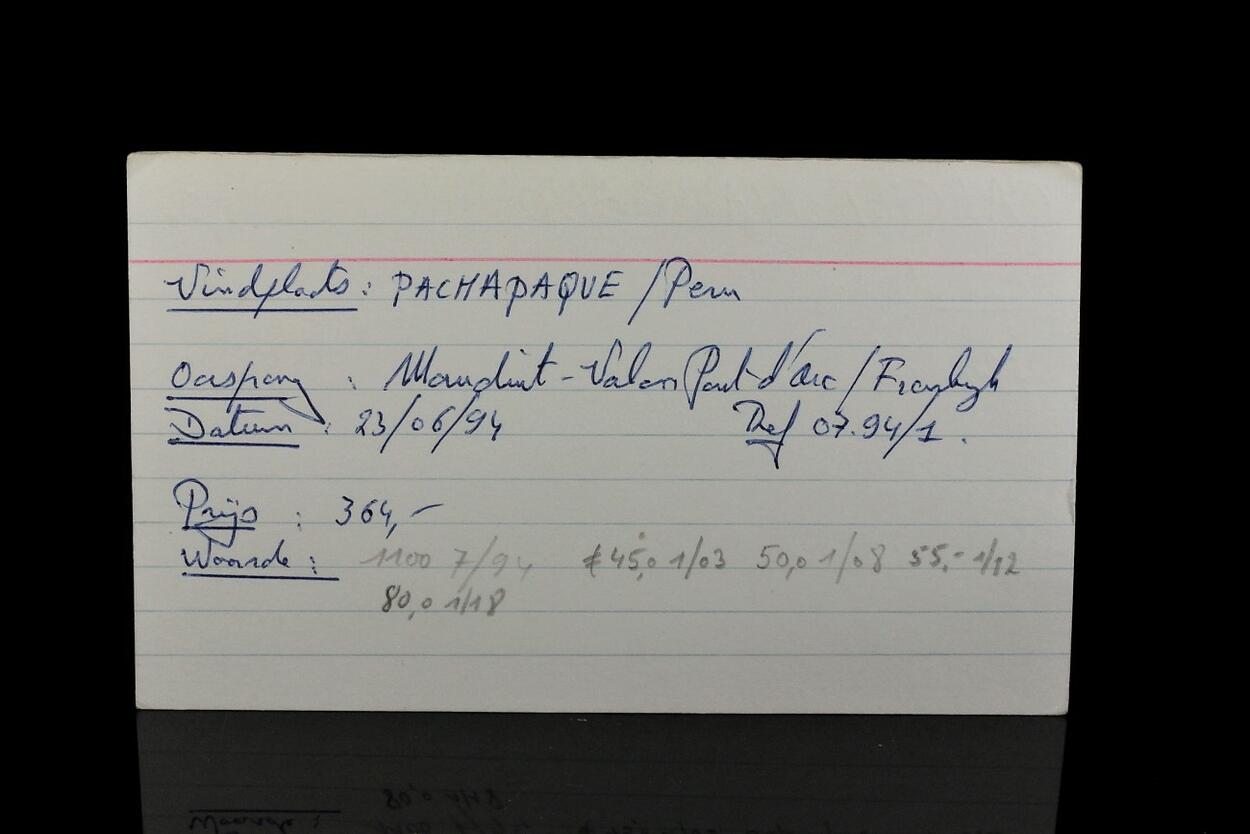 Vindplaats : PACHAPAQUE / Peru
Oorsprong : Maudint - Valon Pont d'arc / Frankrijk
Datum : 23/06/94 Ref 07.94/1.
Prijs : 364,-
Waarde : 1100 7/94 € 45,0 1/03 50,0 1/08 55,- 1/12
80,0 1/18